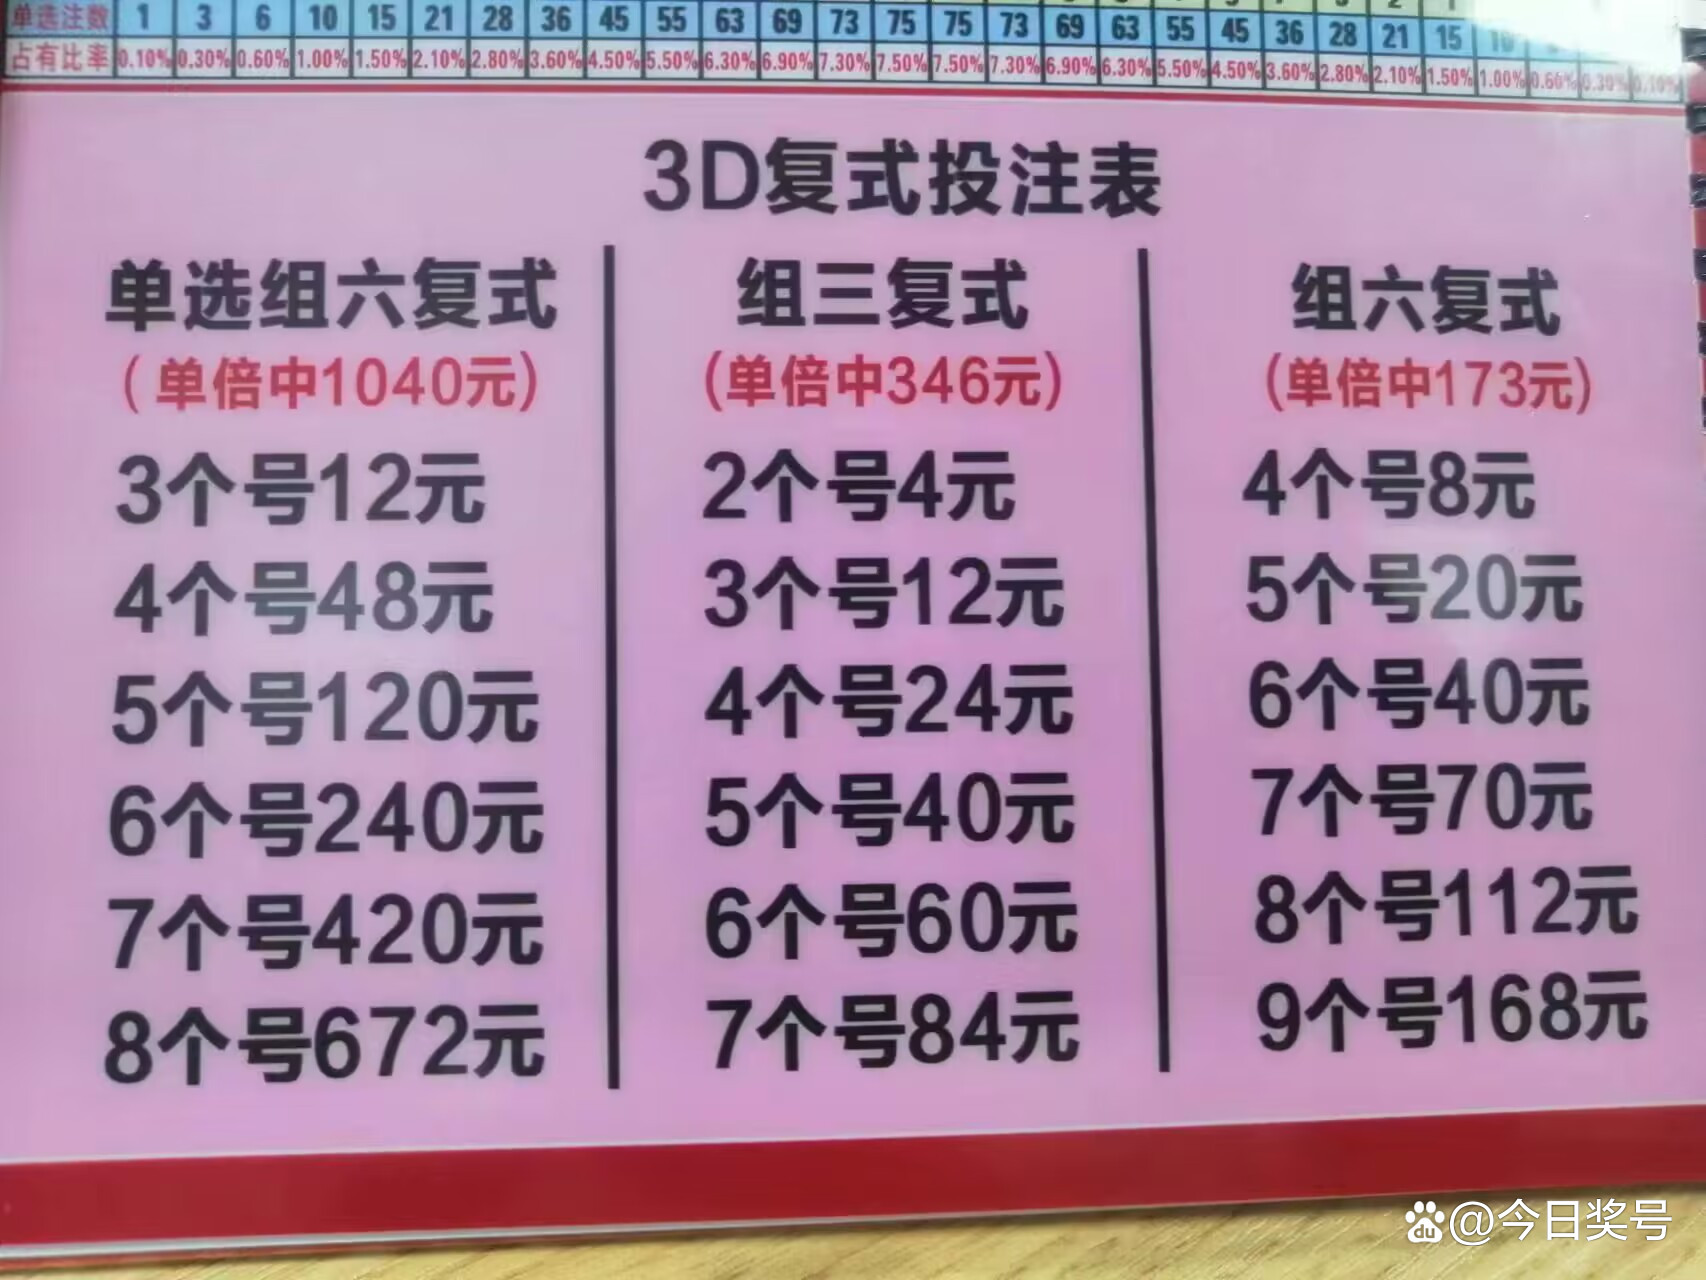 单选注数 1 3 6 10 15 21 28 36 45 55 63 69 73 75 75 73 69 63 55 45 36 28 21 15 10
占有比率 0.10% 0.30% 0.60% 1.00% 1.50% 2.10% 2.80% 3.60% 4.50% 5.50% 6.30% 6.90% 7.30% 7.50% 7.50% 7.30% 6.90% 6.30% 5.50% 4.50% 3.60% 2.80% 2.10% 1.50% 1.00% 0.60% 0.30% 0.10%
3D复式投注表
单选组六复式
(单倍中1040元)
3个号12元
4个号48元
5个号120元
6个号240元
7个号420元
8个号672元
组三复式
(单倍中346元)
2个号4元
3个号12元
4个号24元
5个号40元
6个号60元
7个号84元
组六复式
(单倍中173元)
4个号8元
5个号20元
6个号40元
7个号70元
8个号112元
9个号168元
du @今日奖号